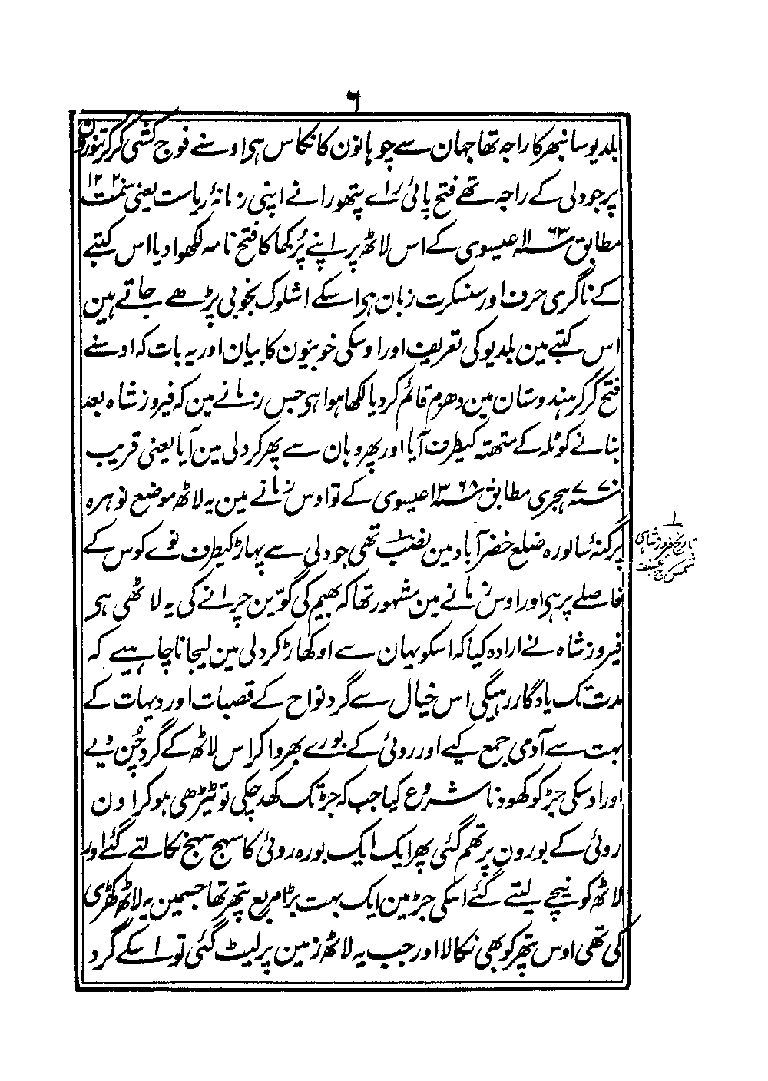 ٦
بلدیو سانبھر کا راجہ تھا جہان سے چوہانون کا نکاس ہی اوسنے فوج کشی کر کر تنورون
پر جو دلی کے راجہ تھے فتح پائی رائے پتھورا نے اپنی زمانۂ ریاست یعنی سمت ١٢٢٠
مطابق ١١٦٣ عیسوی کے اس لاٹھ پر اپنے پُرکھا کا فتح نامہ لکھوا دیا اس کتبے
کے ناگری حرف اور سنسکرت زبان ہی اسکے اشلوک بخوبی پڑھے جاتے ہین
اس کتبے مین بلدیو کی تعریف اور اوسکی خوبیون کا بیان اور یہ بات کہ اوسنے
فتح کر کر ہندوستان مین دھرم قائم کر دیا لکھا ہوا ہی جس زمانے مین کہ فیروز شاہ بعد
بنانے کوٹلہ کے ٹھتھہ کیطرف آیا اور پھر وہان سے پھر کر دلی مین آیا یعنی قریب
٧٧٠ ہجری مطابق ١٣٦٨ عیسوی کے تو اوس زمانے مین یہ لاٹھ موضع نوہرہ
پرگنۂ سالورہ ضلع خضرآباد مین نصب تھی جو دلی سے پہاڑ کیطرف نوے کوس کے
فاصلے پر ہی اور اوس زمانے مین مشہور تھا کہ بھیم کی گوین چرانے کی یہ لاٹھی ہی
فیروز شاہ نے ارادہ کیا کہ اسکو یہان سے اوکھاڑ کر دلی مین لیجانا چاہیے کہ
مدت تک یادگار رہیگی اس خیال سے گرد نواح کے قصبات اور دیہات کے
بہت سے آدمی جمع کیے اور روئی کے بورے بھروا کر اس لاٹھ کے گرد چُن دیے
اور اوسکی جڑ کو کھودنا شروع کیا جب کہ جڑ تک کھد چکی تو ٹیڑھی ہو کر اون
روئی کے بورون پر تھم گئی پھر ایک ایک بورہ روئی کا سہج سہج نکالتے گئے اور
لاٹھ کو نیچے لیتے گئے اسکی جڑ مین ایک بہت بڑا مربع پتھر تھا جسمین یہ لاٹھ کھڑی
کی تھی اوس پتھر کو بھی نکالا اور جب یہ لاٹھ زمین پر لیٹ گئی تو اسکے گرد
١
تاریخ فیروز شاہی
شمس سراج عفیف